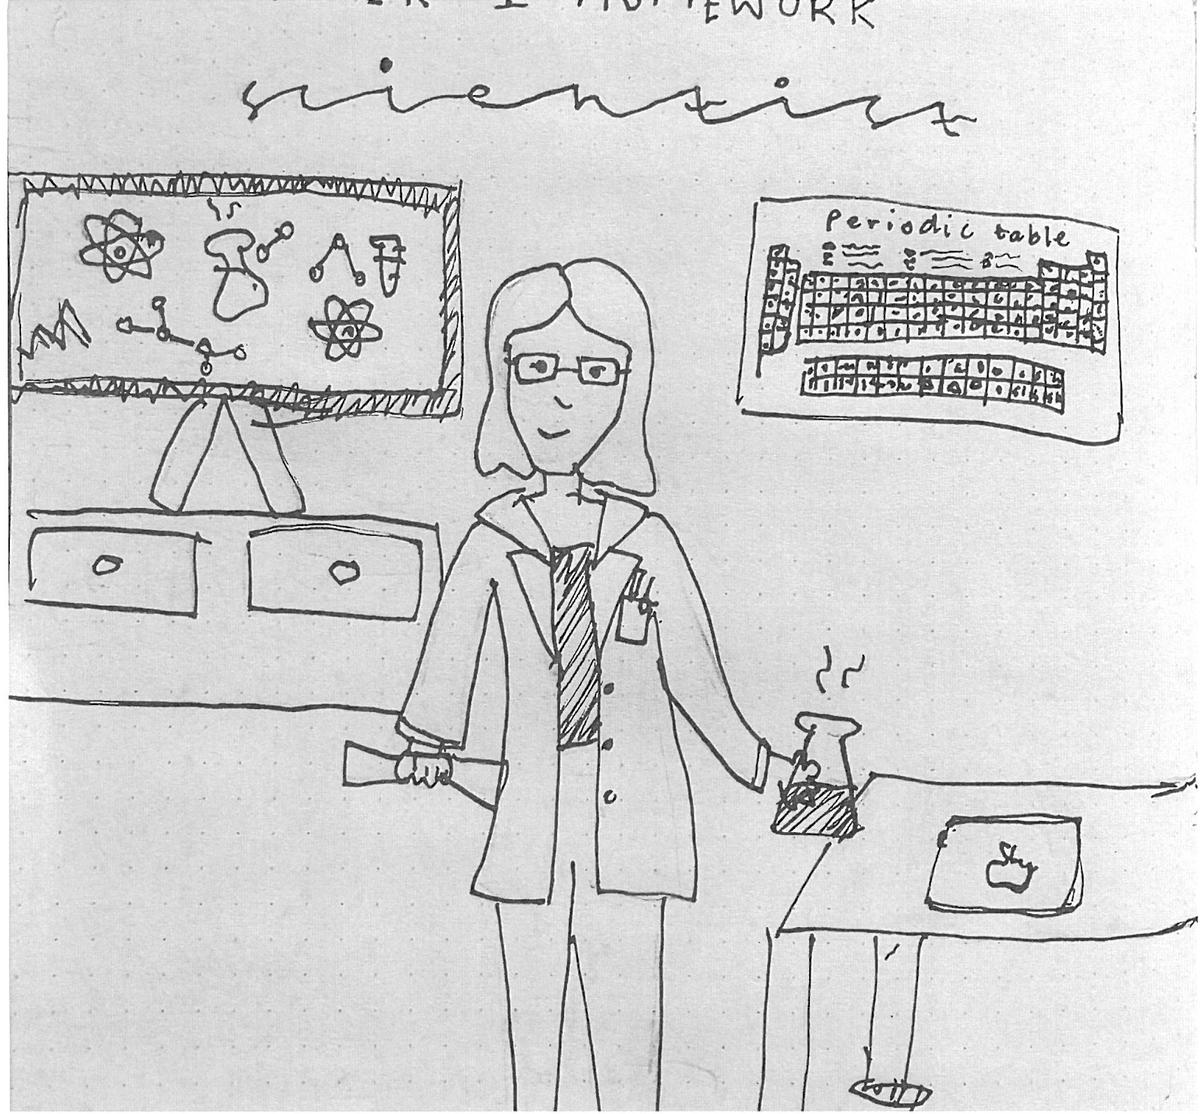 HOMEWORK
scientist
Periodic table